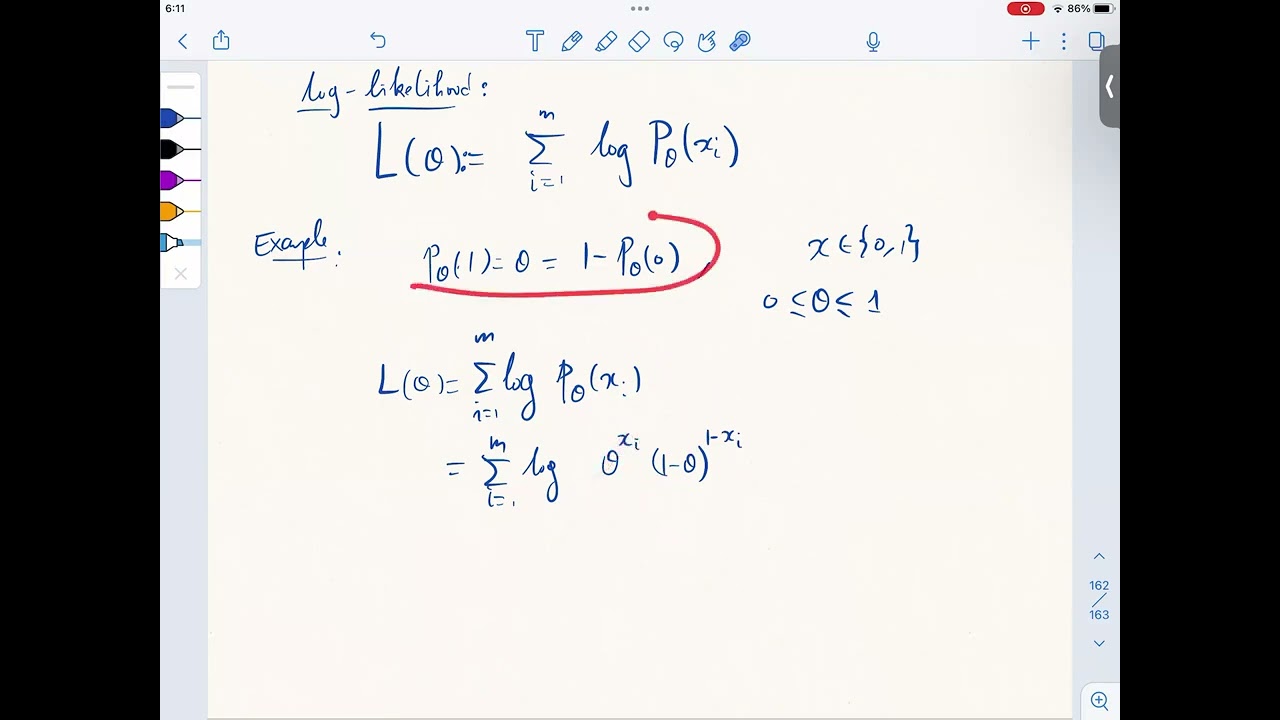 6:11
86%
log-likelihood:
L(θ):= ∑_{i=1}^{m} log P_θ(x_i)
Example:
P_θ(1)=θ = 1-P_θ(0)
x∈{0,1}
0 ≤ θ ≤ 1
L(θ)= ∑_{i=1}^{m} log P_θ(x_i)
= ∑_{i=1}^{m} log θ^{x_i} (1-θ)^{1-x_i}
162
163